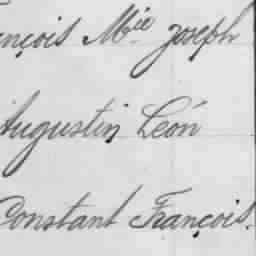 nçois M^ie Joseph
Augustin Léon
Constant François.